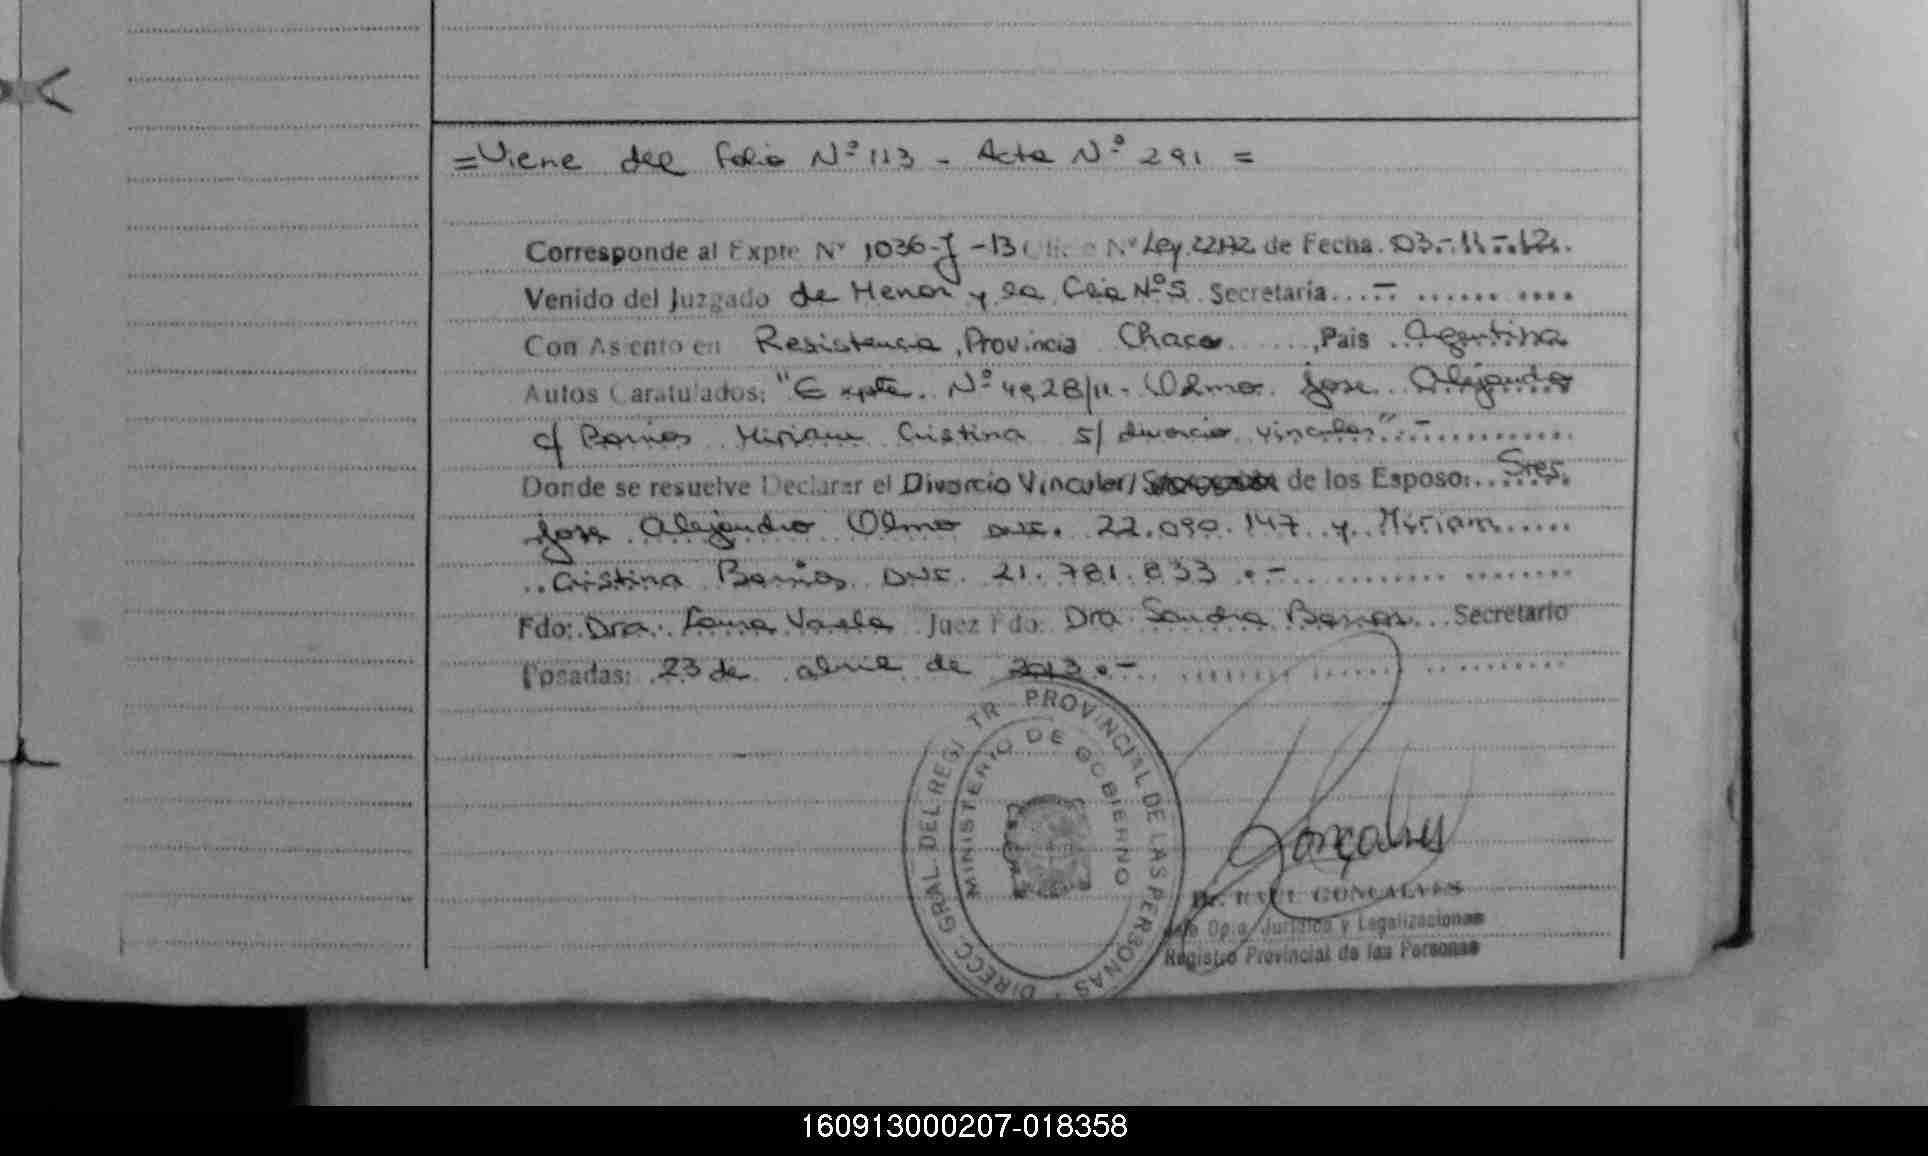 =Viene del folio Nº 113 - Acta Nº 291 =
Corresponde al Expte Nº 1036-J-13 Oficio Nº Ley 22172 de Fecha 03.-11-.12.
Venido del Juzgado de Menor y la Flia Nº 5 Secretaría....-
Con Asiento en Resistencia, Provincia Chaco ......, País Argentina
Autos Caratulados; "Expte. Nº 4928/11- Olmo Jose Alejandro
c/ Barrios Miriam Cristina s/ divorcio vincular".-
Donde se resuelve Declarar el Divorcio Vincular/ de los Esposo: Sres.
Jose Alejandro Olmo DNI. 22.090.147 y Miriam
Cristina Barrios DNI. 21.781.833.-
Fdo: Dra. Laura Varela Juez Fdo: Dra. Sandra Secretario
Posadas: 23 de abril de 2013.-
DIRECC GRAL DEL REGISTR PROVINCIAL DE LAS PERSONAS
MINISTERIO DE GOBIERNO
Gonçalves
Dr. RAUL GONCALVES
Jefe Dpto. Jurídico y Legalizaciones
Registro Provincial de las Personas
160913000207-018358